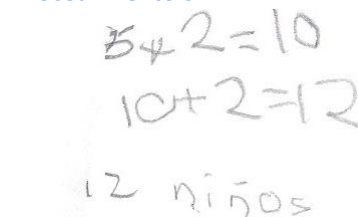 5x2=10
10+2=12
12 niños